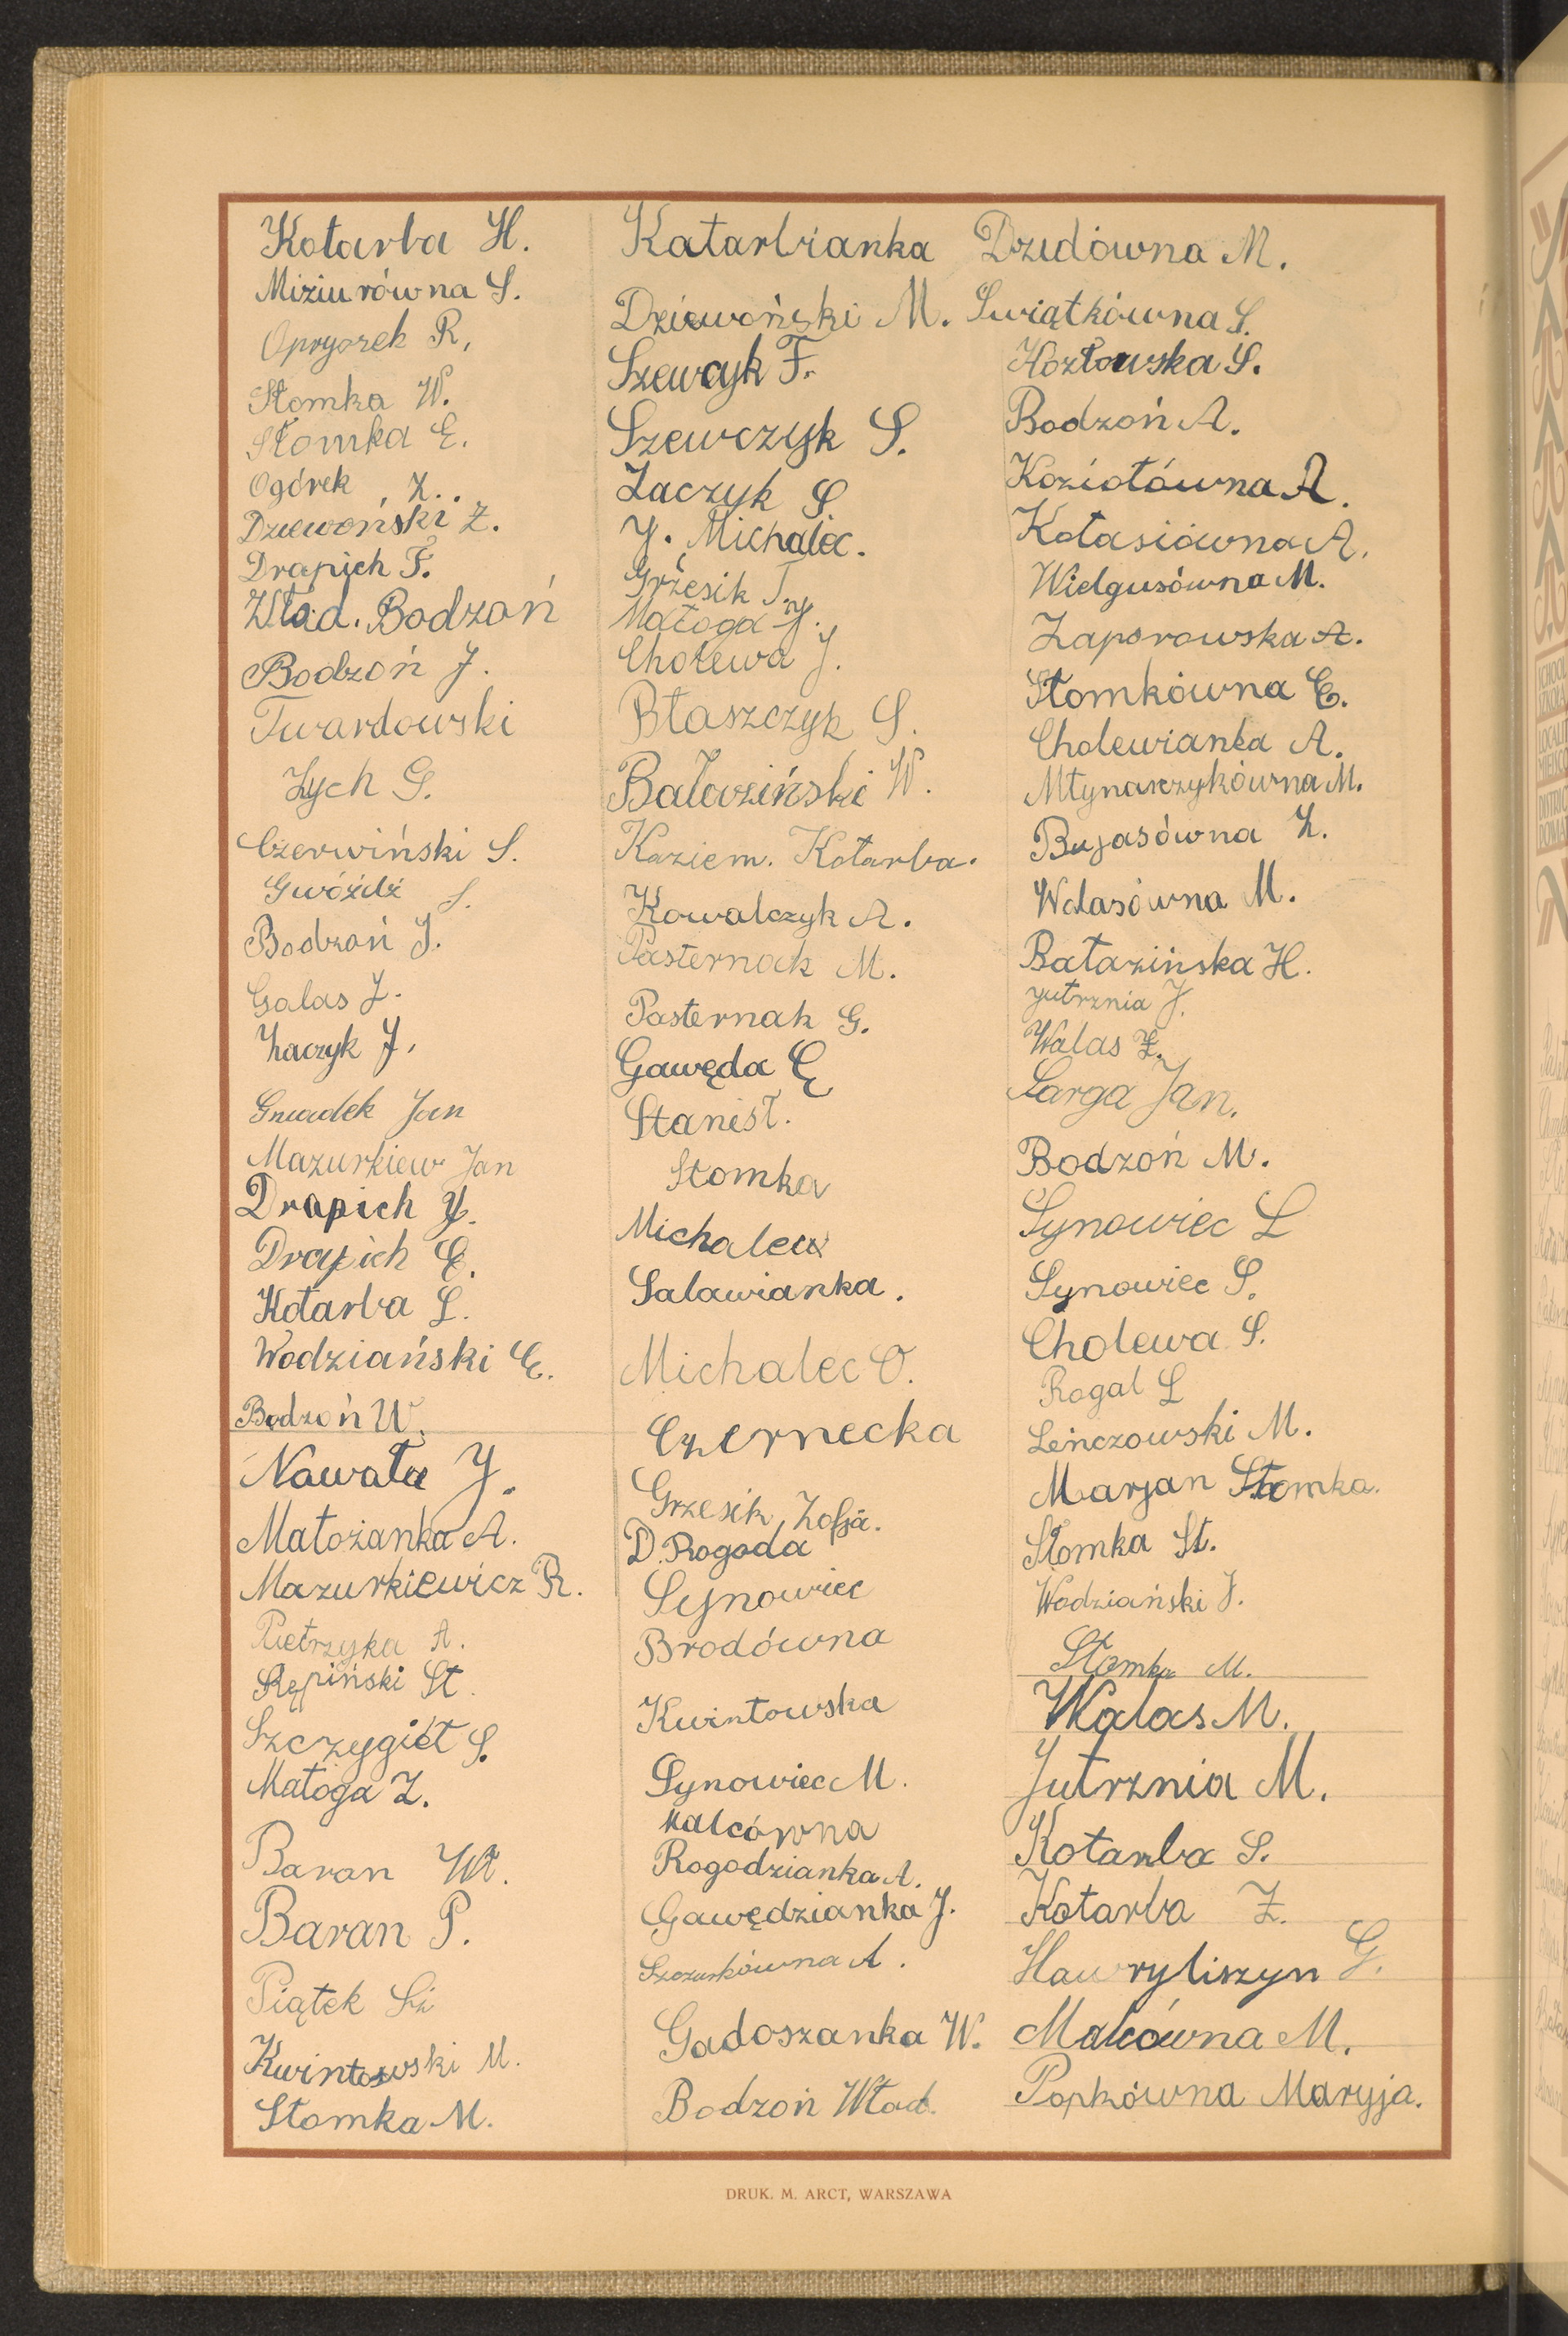 Kotarba H.
Miziurówna S.
Opryszek R.
Słomka W.
Słomka E.
Ogórek Z.
Dziewoński Z.
Drapich F.
Wład. Bodzoń
Bodzoń J.
Twardowski
Zych G.
Czerwiński S.
Gwóźdź S.
Bodzoń J.
Galas J.
Zaczyk J.
Gniadek Jan
Mazurkiew Jan
Drapich J.
Drapich E.
Kotarba L.
Wodziański E.
Bodzoń W.
Nawała J.
Małożanka A.
Mazurkiewicz R.
Pietrzyka A.
Rępiński St.
Szczygieł S.
Małoga Z.
Baran Wł.
Baran P.
Piątek
Kwintowski M.
Słomka M.
Katarbianka
Dziewoński M.
Szewcyk F.
Szewczyk S.
Zaczyk S.
J. Michalec.
Grzesik J.
Małoga J.
Cholewa J.
Błaszczyk S.
Bałaziński W.
Kaziem. Kotarba.
Kowalczyk A.
Pasternak M.
Pasternak G.
Gawęda E
Stanisł.
Słomka
Michalec
Salawianka.
Michalec O.
Czernecka
Grzesik Zofja.
D. Rogoda
Synowiec
Brodówna
Kwintowska
Synowiec M.
Malcówna
Rogodzianka A.
Gawędzianka J.
Szczurkówna A.
Gadoszanka W.
Bodzoń Wład.
Dzidówna M.
Swiątkówna S.
Kozłowska S.
Bodzoń A.
Koziołówna A.
Kołasiówna A.
Wielgusówna M.
Zaporowska A.
Słomkówna E.
Cholewianka A.
Młynarczykówna M.
Bujasówna Z.
Wolasówna M.
Bałazińska H.
Jutrznia J.
Walas Z.
Sarga Jan.
Bodzoń M.
Synowiec L
Synowiec S.
Cholewa S.
Rogal L
Leńczowski M.
Marjan Słomka.
Słomka St.
Wodziański J.
Słomka M.
Walas M.
Jutrznia M.
Kotarba S.
Kotarba Z.
Hawryliszyn G.
Malcówna M.
Popkówna Maryja.
DRUK. M. ARCT, WARSZAWA